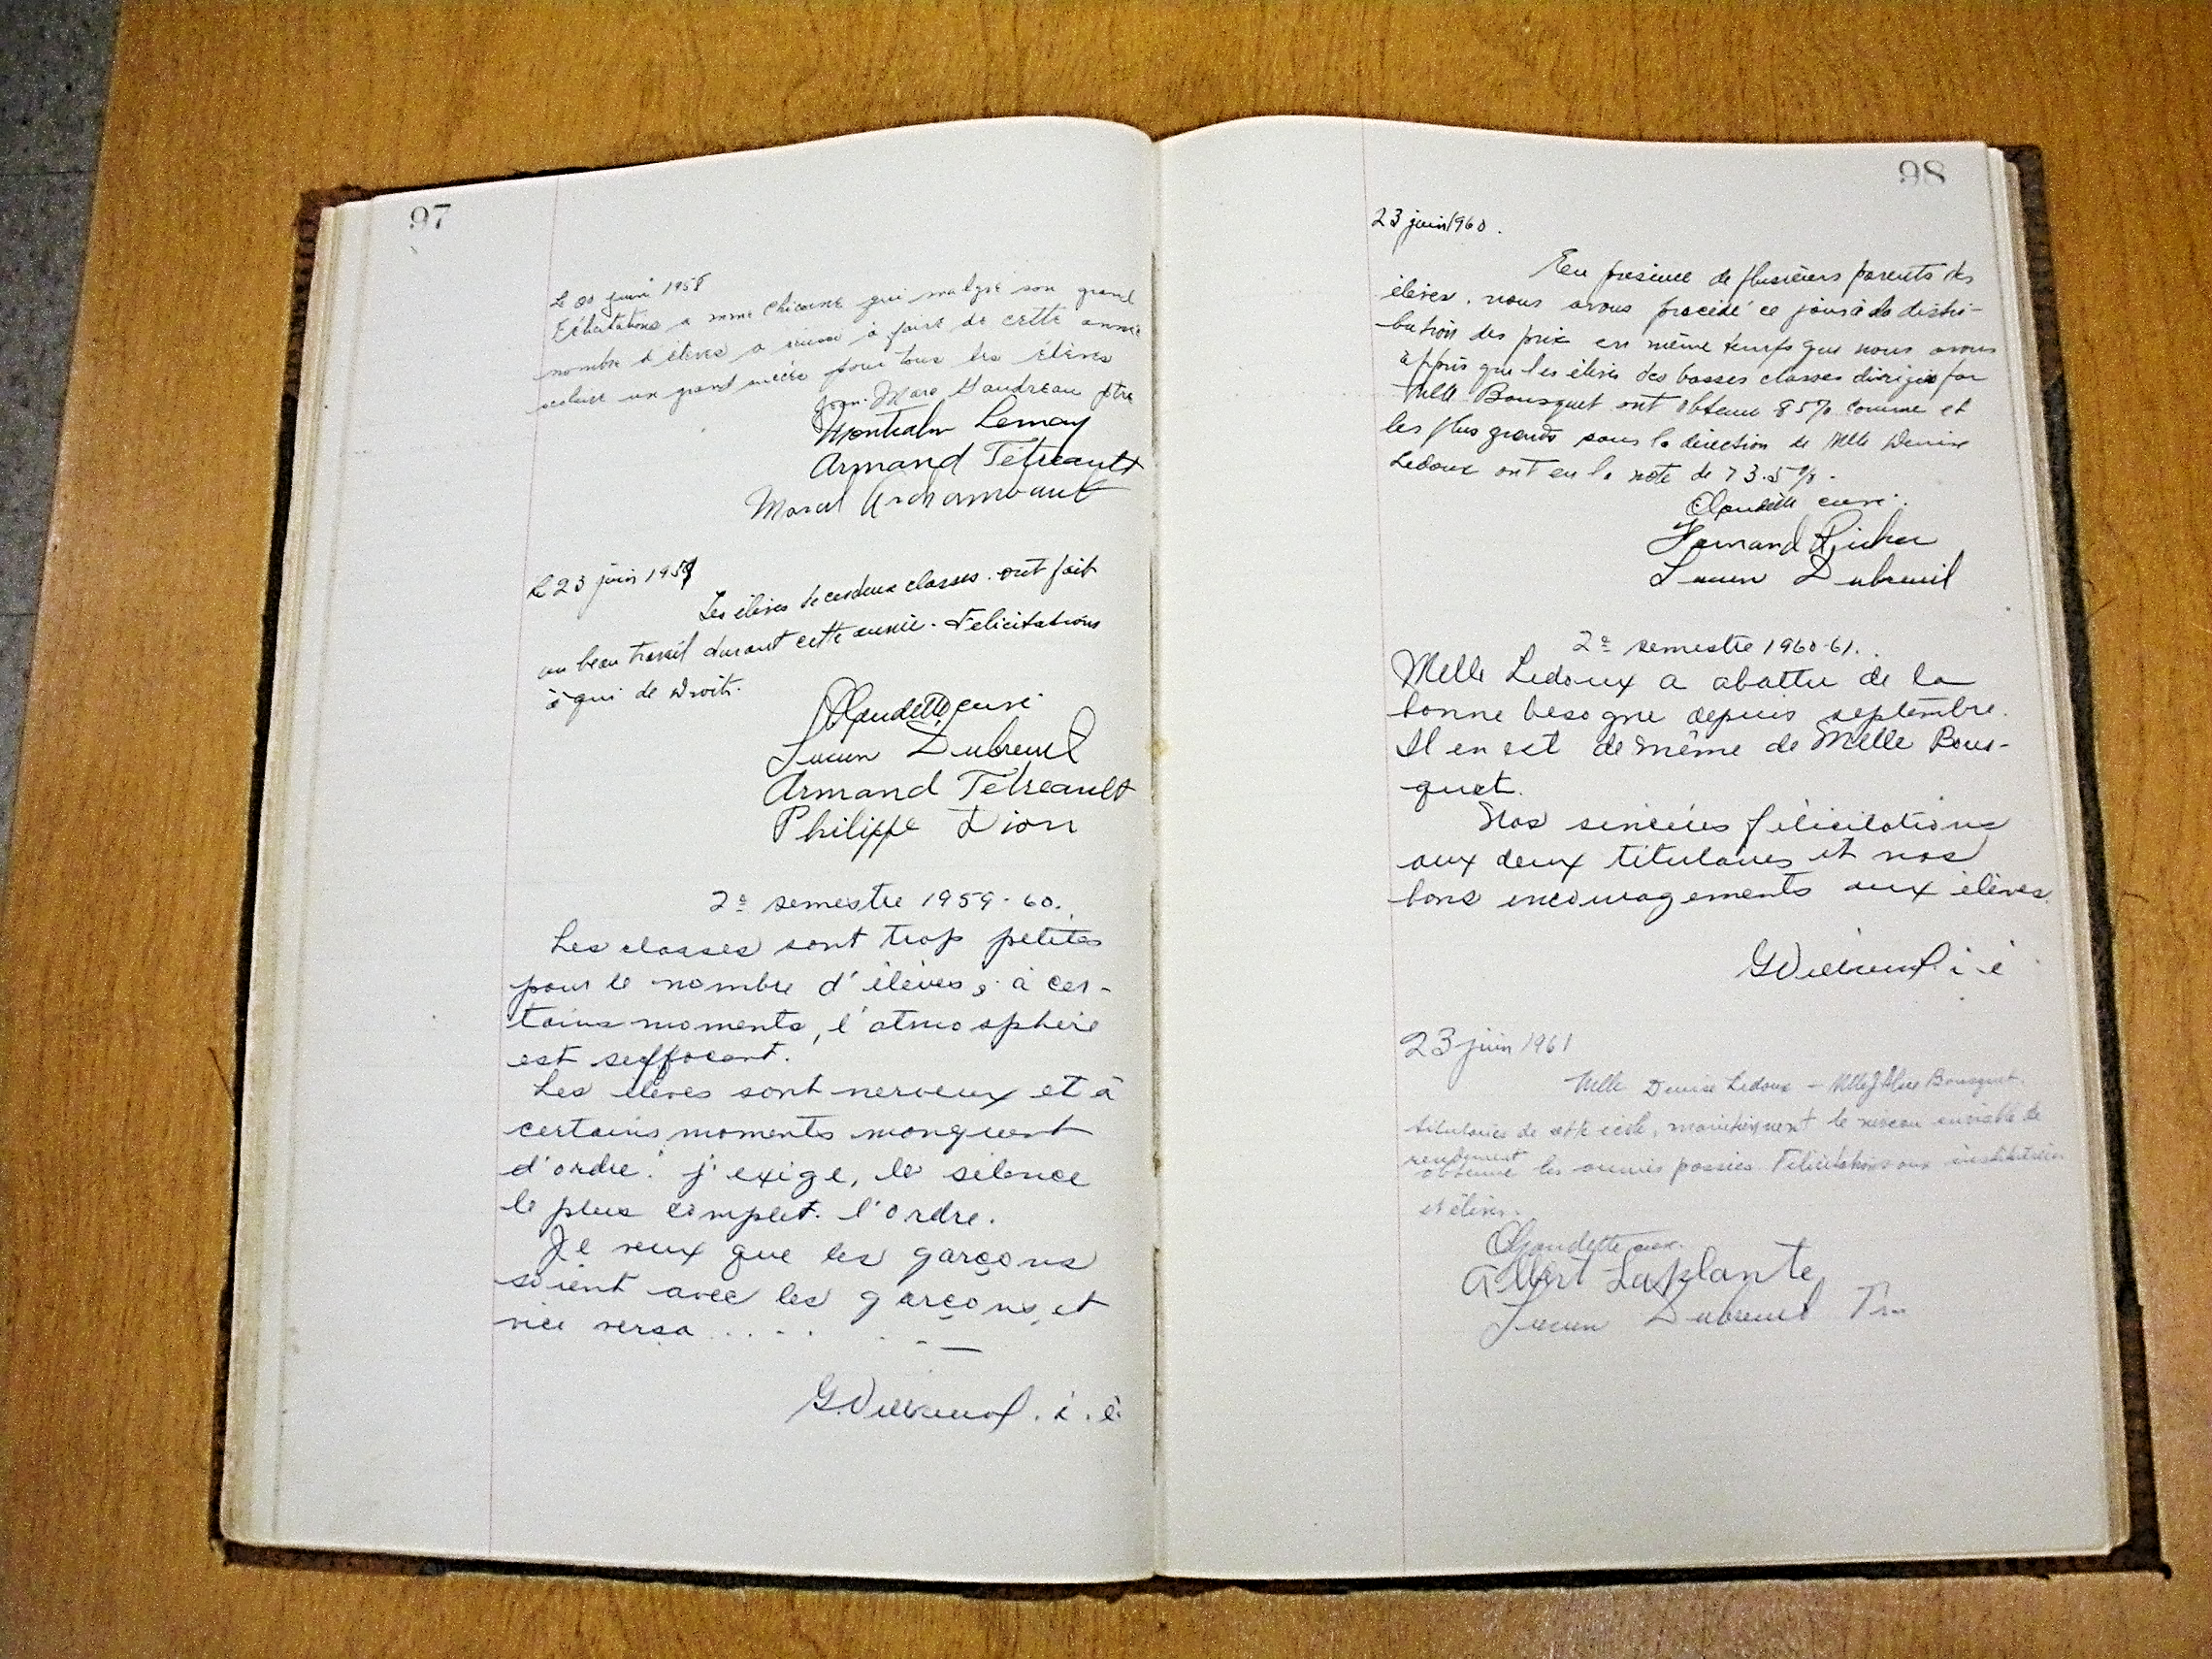 97
Le 20 juin 1958
Félicitations a mme Chicoine qui malgré son grand
nombre d'élèves a réussi à faire de cette année
scolaire un grand succès pour tous les élèves
Jean-Marc Gaudreau ptre
Montcalm Lemay
Armand Tetreault
Marcel Archambault
Le 23 juin 1959
Les élèves de ces deux classes ont fait
un beau travail durant cette année. Félicitations
à qui de droit.
Gaudette curé
Lucien Dubreuil
Armand Tetreault
Philippe Dion
2e semestre 1959-60.
Les classes sont trop petites
pour le nombre d'élèves; à cer-
tains moments, l'atmosphère
est suffocant.
Les élèves sont nerveux et à
certains moments manquent
d'ordre. j'exige, le silence
le plus complet. l'ordre.
Je veux que les garçons
soient avec les garçons, et
vice versa.....
i. é.
98
23 juin 1960.
En présence de plusieurs parents des
élèves, nous avons procédé ce jour à la distri-
bution des prix en même temps que nous avons
appris que les élèves des basses classes dirigées par
Melle Bousquet ont obtenu 85% comme et
les plus grands sous la direction de Melle Denise
Ledoux ont eu la note de 73.5%.
Gaudette curé.
Fernand Richer
Lucien Dubreuil
2e semestre 1960-61.
Melle Ledoux a abattu de la
bonne besogne depuis septembre.
Il en est de même de Melle Bous-
quet.
Nos sincères félicitations
aux deux titulaires et nos
bons encouragements aux élèves.
i. é
23 juin 1961
Melle Denise Ledoux - Melle Bousquet.
titulaires de cette école, maintiennent le niveau enviable de
rendement
obtenu les années passées. Félicitations aux institutrices
et élèves.
Gaudette curé.
Albert Laplante
Lucien Dubreuil